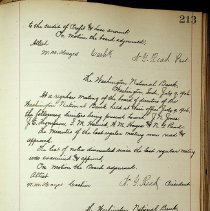 213
to the credit of Profit & Loss account.
On motion the board adjourned.
Attest
Cashier N. G. Read Pres
The Washington National Bank,
Washington, Ind., July 9, 1906.
A regular meeting of the board of directors of the
Washington National Bank, held at their office July 9, 1906,
the following directors being present towit: J.
The minutes of the last regular meeting were read &
approved.
The list of notes discounted since the last regular meeting
was examined & approved.
On motion the Board adjourned.
Attest
Cashier N. G. Read, President
The Washington National Bank